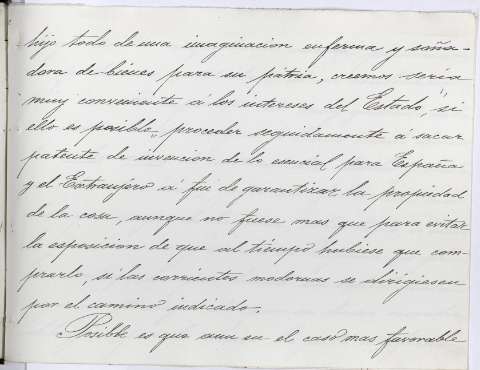 hijo todo de una imaginacion enferma y soña-
dora de bienes para su pátria, creemos seria
muy conveniente á los intereses del Estado, si
ello es posible, proceder seguidamente á sacar
patente de invencion de lo esencial para España
y el Extranjero á fin de garantizar la propiedad
de la cosa, aunque no fuese mas que para evitar
la esposicion de que al tiempo hubiese que com-
prarlo, si las corrientes modernas se dirigiesen
por el camino indicado.
Posible es que aun en el caso mas favorable